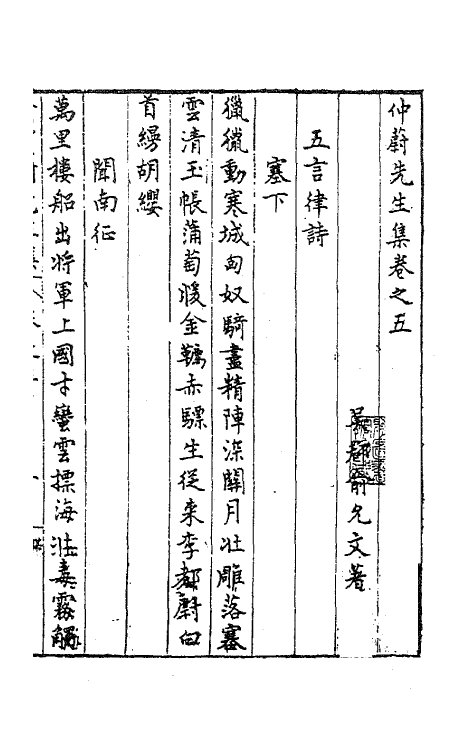 仲蔚先生集卷之五
吳郡俞允文著
五言律詩
塞下
獵獵動寒城匈奴騎盡精陣深關月壯雕落塞
雲清玉帳蒲萄煖金韉赤驃生從来李都尉白
首縵胡纓
聞南征
萬里樓船出將軍上國才蠻雲摽海壯毒霧觸